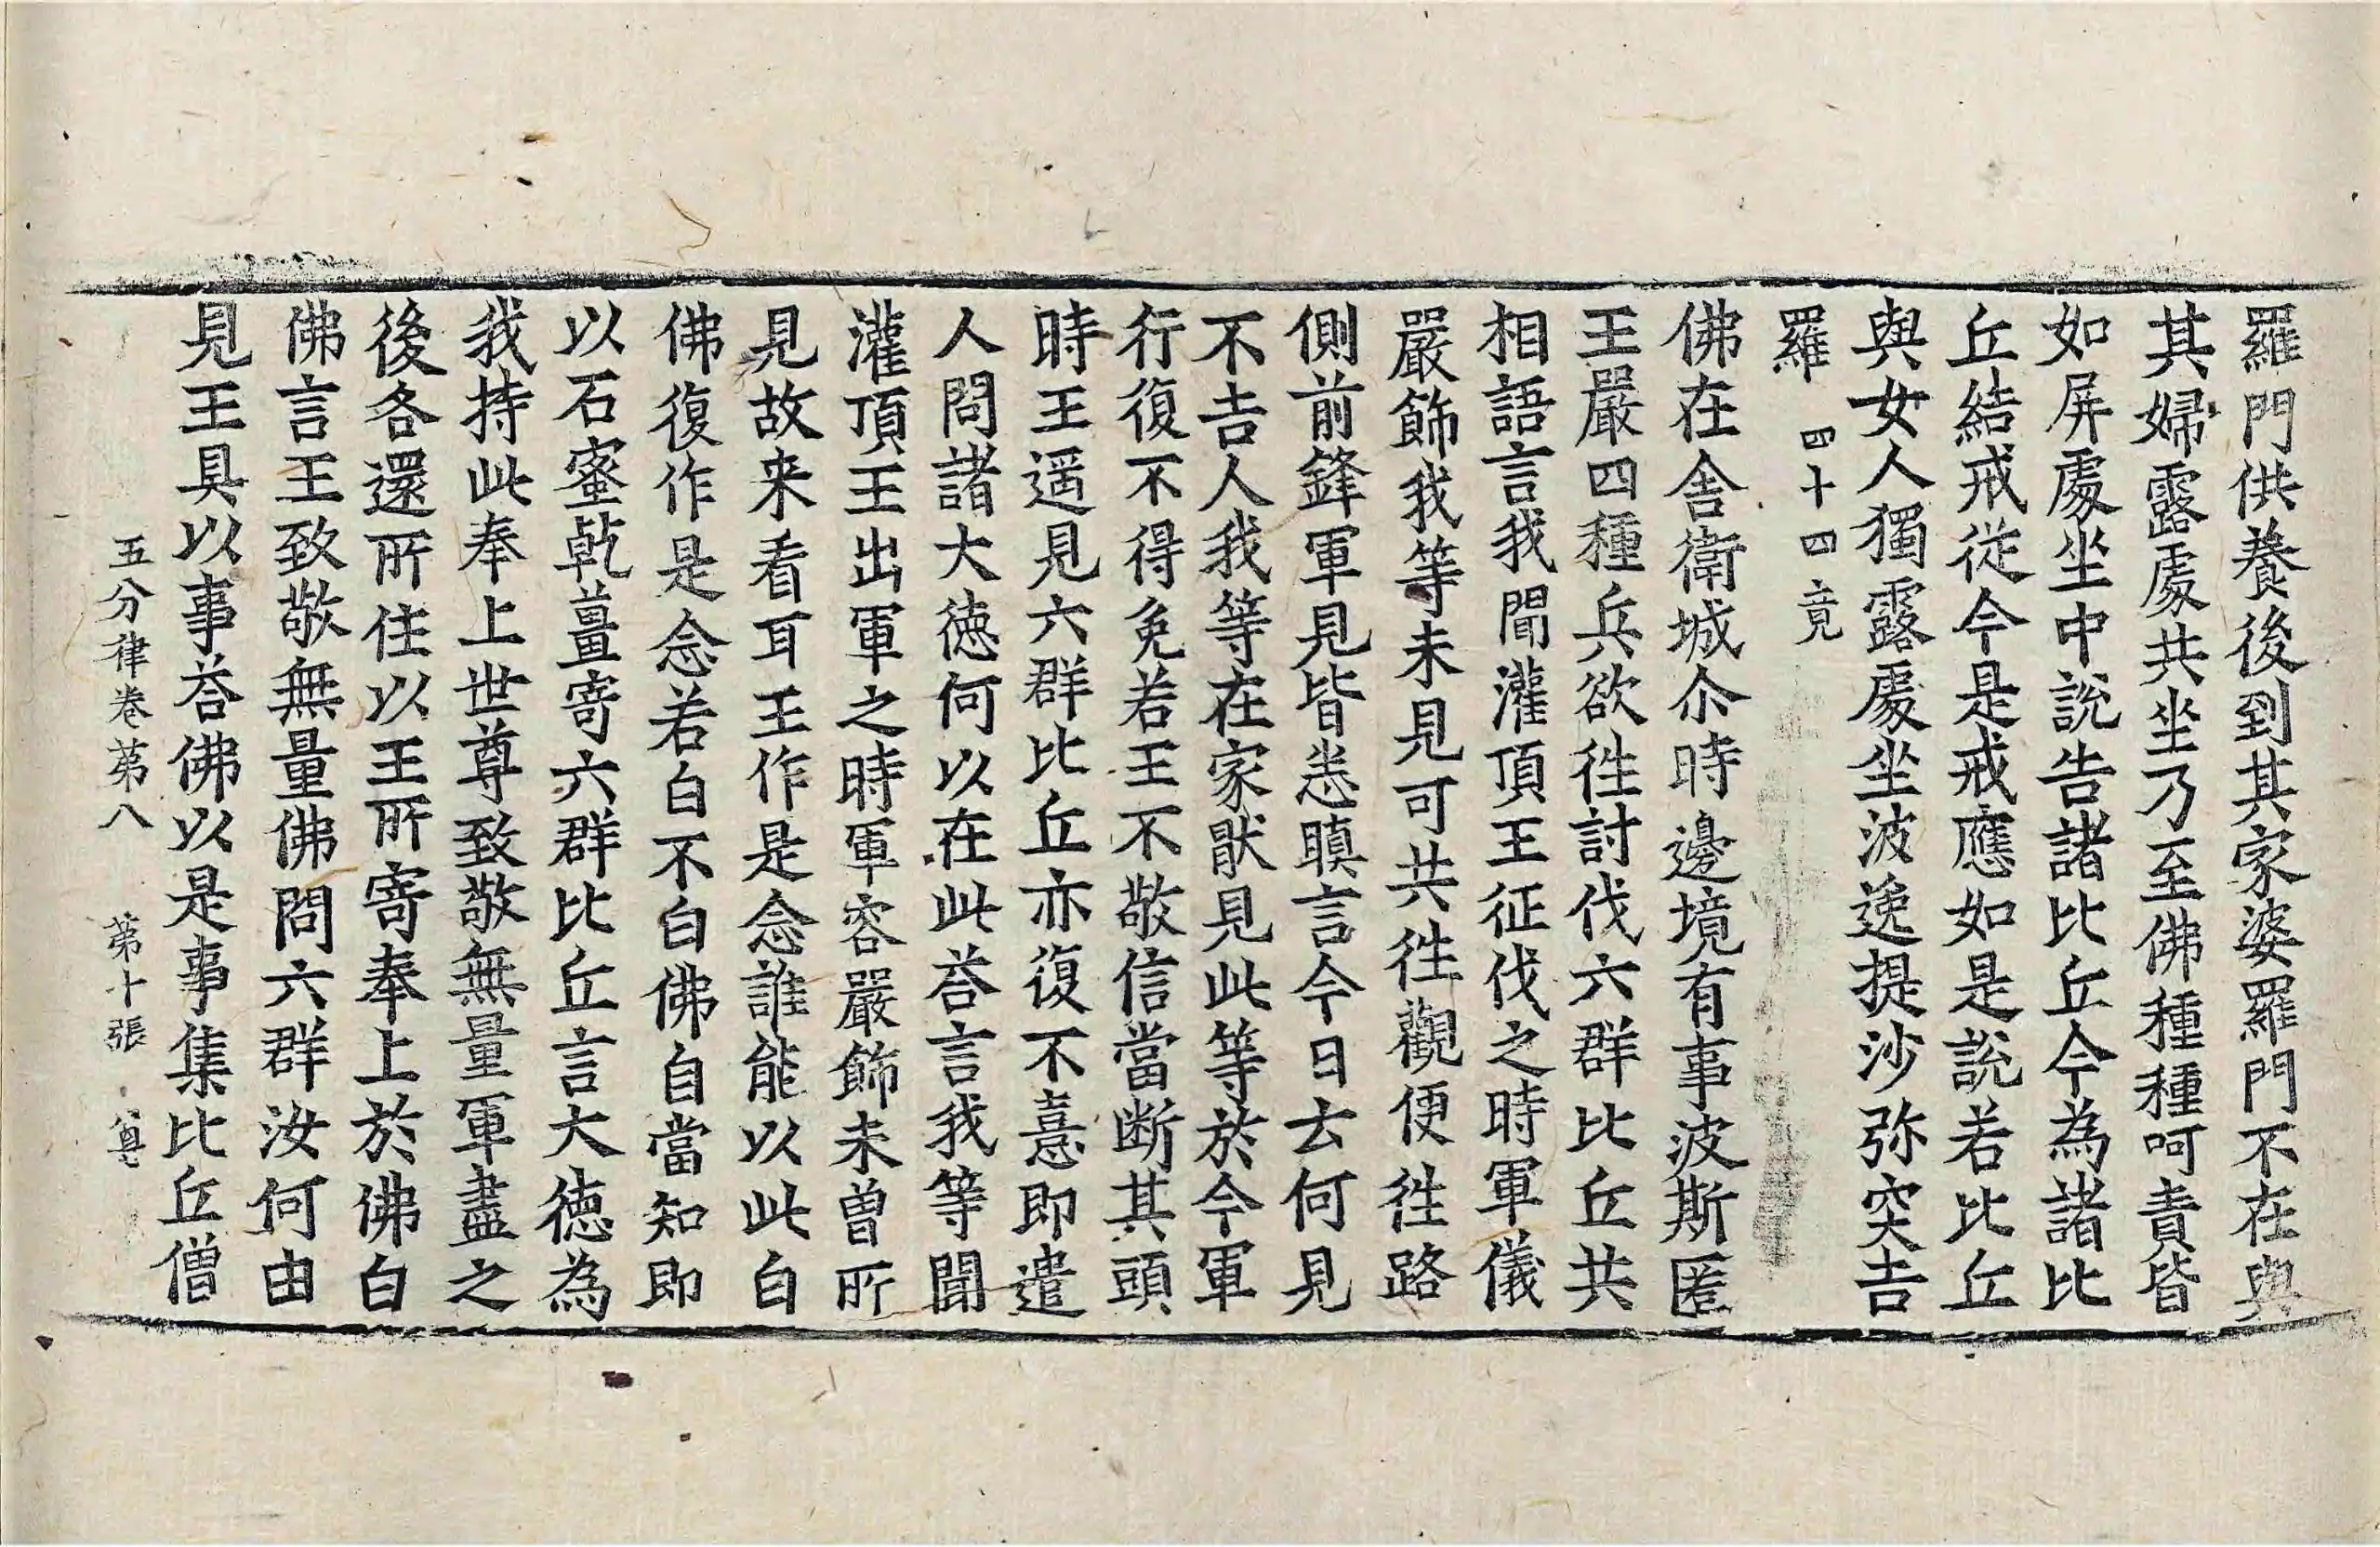 羅門供養後到其家婆羅門不在與
其婦露處共坐乃至佛種種呵責皆
如屏處坐中說告諸比丘今為諸比
丘結戒從今是戒應如是說若比丘
與女人獨露處坐波逸提沙弥突吉
羅 四十四竟
佛在舍衛城尒時邊境有事波斯匿
王嚴四種兵欲往討伐六群比丘共
相語言我聞灌頂王征伐之時軍儀
嚴飾我等未見可共往觀便往路
側前鋒軍見皆恚瞋言今日云何見
不吉人我等在家猒見此等於今軍
行復不得免若王不敬信當斷其頭
時王遥見六群比丘亦復不憙即遣
人問諸大德何以在此荅言我等聞
灌頂王出軍之時軍容嚴飾未曾所
見故来看耳王作是念誰能以此白
佛復作是念若白不白佛自當知即
以石蜜乹薑寄六群比丘言大德為
我持此奉上世尊致敬無量軍盡之
後各還所住以王所寄奉上於佛白
佛言王致敬無量佛問六群汝何由
見王具以事荅佛以是事集比丘僧
五分律卷苐八 苐十張